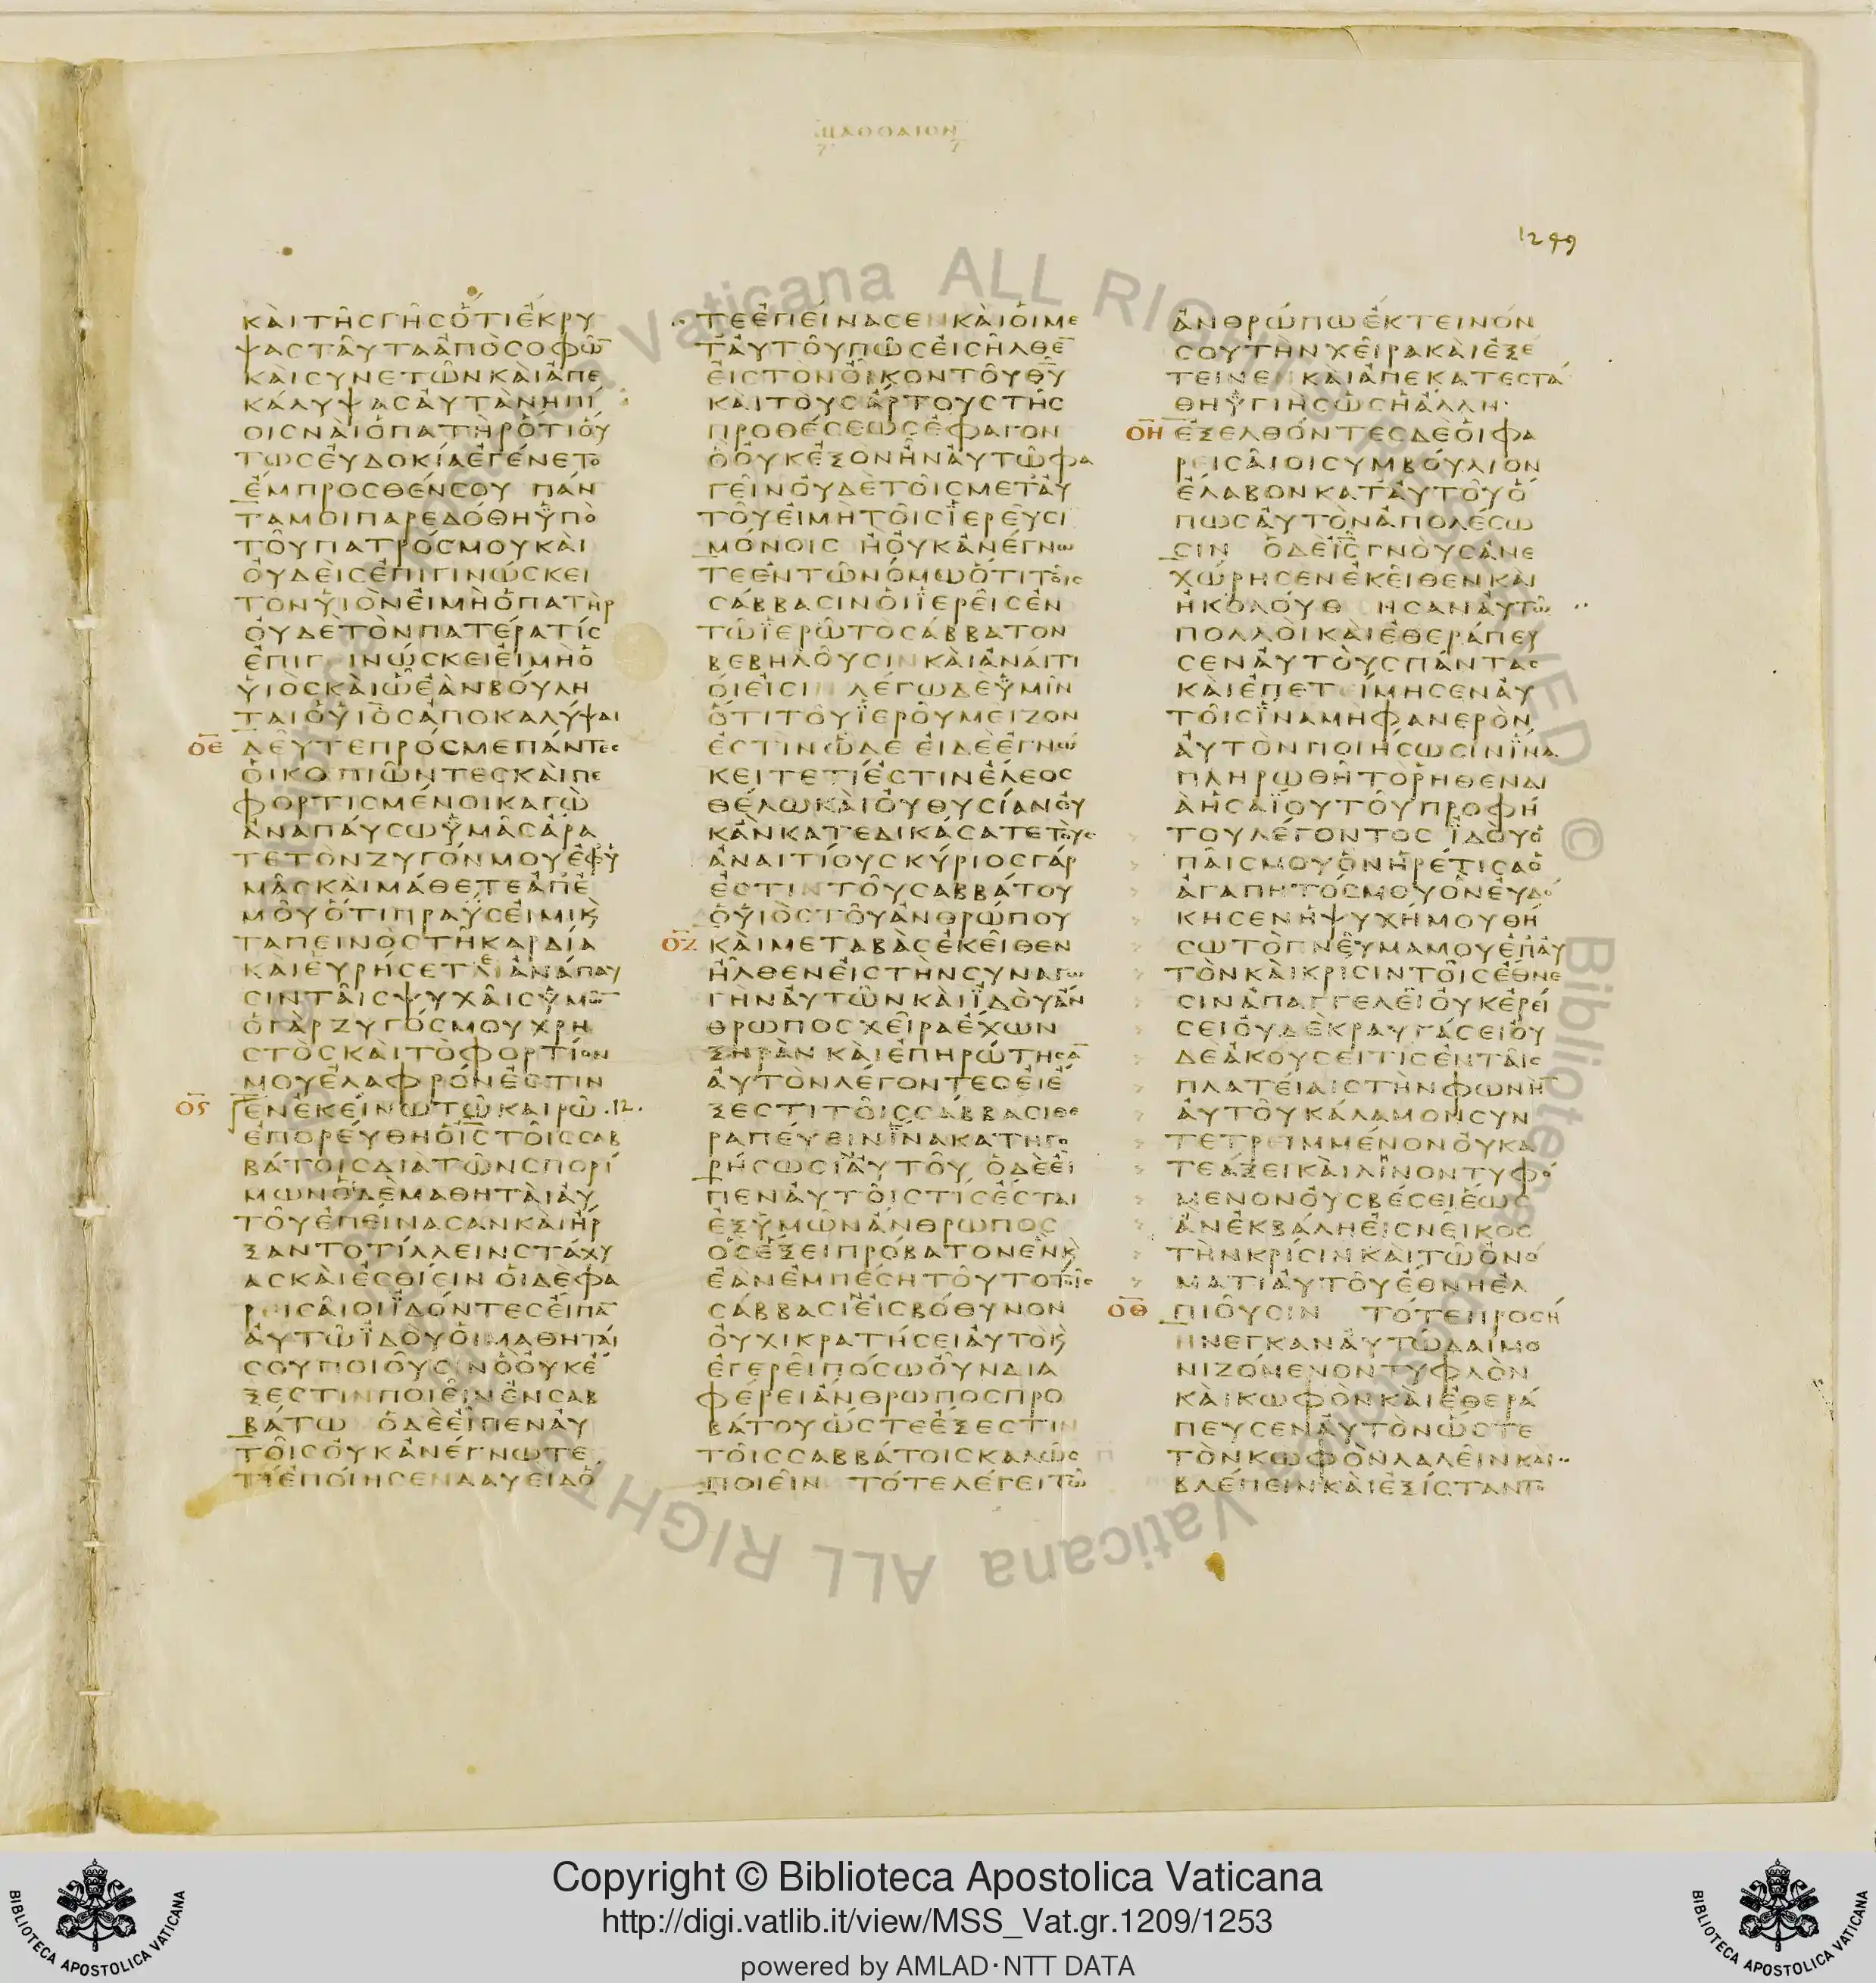 ΜΑΘΘΑΙΟΝ
1249
ΚΑΙΤΗΣΓΗΣΟΤΙΕΚΡΥ
ΨΑΣΤΑΥΤΑΑΠΟΣΟΦΩ̅
ΚΑΙΣΥΝΕΤΩΝΚΑΙΑΠΕ
ΚΑΛΥΨΑΣΑΥΤΑΝΗΠΙ
ΟΙΣΝΑΙΟΠΑΤΗΡΟΤΙΟΥ
ΤΩΣΕΥΔΟΚΙΑΕΓΕΝΕΤΟ
ΕΜΠΡΟΣΘΕΝΣΟΥ ΠΑΝ
ΤΑΜΟΙΠΑΡΕΔΟΘΗΫΠΟ
ΤΟΥΠΑΤΡΟΣΜΟΥΚΑΙ
ΟΥΔΕΙΣΕΠΙΓΙΝΩΣΚΕΙ
ΤΟΝΥΙΟΝΕΙΜΗΟΠΑΤΗΡ
ΟΥΔΕΤΟΝΠΑΤΕΡΑΤΙΣ
ΕΠΙΓΕΙΝΩΣΚΕΙΕΙΜΗΟ
ΥΙΟΣΚΑΙΩΕΑΝΒΟΥΛΗ
ΤΑΙΟΥΙΟΣΑΠΟΚΑΛΥΨΑΙ
ΟΕ ΔΕΥΤΕΠΡΟΣΜΕΠΑΝΤΕΣ
ΟΙΚΟΠΙΩΝΤΕΣΚΑΙΠΕ
ΦΟΡΤΙΣΜΕΝΟΙΚΑΓΩ
ΑΝΑΠΑΥΣΩΫΜΑΣΑΡΑ
ΤΕΤΟΝΖΥΓΟΝΜΟΥΕΦΫ
ΜΑΣΚΑΙΜΑΘΕΤΕΑΠΕ
ΜΟΥΟΤΙΠΡΑΥΣΕΙΜΙΚ
ΤΑΠΕΙΝΟΣΤΗΚΑΡΔΙΑ
ΚΑΙΕΥΡΗΣΕΤΑΙΑΝΑΠΑΥ
ΣΙΝΤΑΙΣΨΥΧΑΙΣΫΜΩ̅
ΟΓΑΡΖΥΓΟΣΜΟΥΧΡΗ
ΣΤΟΣΚΑΙΤΟΦΟΡΤΙΟΝ
ΜΟΥΕΛΑΦΡΟΝΕΣΤΙΝ
ΟϚ ΕΝΕΚΕΙΝΩΤΩΚΑΙΡΩ .12.
ΕΠΟΡΕΥΘΗΟΙ̅Σ̅ΤΟΙΣΣΑΒ
ΒΑΤΟΙΣΔΙΑΤΩΝΣΠΟΡΙ
ΜΩΝΟΙΔΕΜΑΘΗΤΑΙΑΥ
ΤΟΥΕΠΕΙΝΑΣΑΝΚΑΙΗΡ
ΞΑΝΤΟΤΙΛΛΕΙΝΣΤΑΧΥ
ΑΣΚΑΙΕΣΘΙΕΙΝ ΟΙΔΕΦΑ
ΡΕΙΣΑΙΟΙΪΔΟΝΤΕΣΕΙΠΑ̅
ΑΥΤΩΪΔΟΥΟΙΜΑΘΗΤΑΙ
ΣΟΥΠΟΙΟΥΣΙΝΟΟΥΚΕ
ΞΕΣΤΙΝΠΟΙΕΙΝΕΝΣΑΒ
ΒΑΤΩ ΟΔΕΕΙΠΕΝΑΥ
ΤΟΙΣΟΥΚΑΝΕΓΝΩΤΕ
ΤΙΕΠΟΙΗΣΕΝΔΑΥΕΙΔΟ
ΤΕΕΠΕΙΝΑΣΕΝΚΑΙΟΙΜΕ
ΤΑΥΤΟΥΠΩΣΕΙΣΗΛΘΕ̅
ΕΙΣΤΟΝΟΙΚΟΝΤΟΥΘ̅Υ̅
ΚΑΙΤΟΥΣΑΡΤΟΥΣΤΗΣ
ΠΡΟΘΕΣΕΩΣΕΦΑΓΟΝ
ΟΟΥΚΕΞΟΝΗΝΑΥΤΩΦΑ
ΓΕΙΝΟΥΔΕΤΟΙΣΜΕΤΑΥ
ΤΟΥΕΙΜΗΤΟΙΣΪΕΡΕΥΣΙ
ΜΟΝΟΙΣ ΗΟΥΚΑΝΕΓΝΩ
ΤΕΕΝΤΩΝΟΜΩΟΤΙΤΟΙΣ
ΣΑΒΒΑΣΙΝΟΙΪΕΡΕΙΣΕΝ
ΤΩΪΕΡΩΤΟΣΑΒΒΑΤΟΝ
ΒΕΒΗΛΟΥΣΙΝΚΑΙΑΝΑΙΤΙ
ΟΙΕΙΣΙΝ ΛΕΓΩΔΕΫΜΙΝ
ΟΤΙΤΟΥΪΕΡΟΥΜΕΙΖΟΝ
ΕΣΤΙΝΩΔΕ ΕΙΔΕΕΓΝΩ
ΚΕΙΤΕΤΙΕΣΤΙΝΕΛΕΟΣ
ΘΕΛΩΚΑΙΟΥΘΥΣΙΑΝΟΥ
ΚΑΝΚΑΤΕΔΙΚΑΣΑΤΕΤΟΥΣ
ΑΝΑΙΤΙΟΥΣΚΥΡΙΟΣΓΑΡ
ΕΣΤΙΝΤΟΥΣΑΒΒΑΤΟΥ
ΟΥΙΟΣΤΟΥΑΝΘΡΩΠΟΥ
ΟΖ ΚΑΙΜΕΤΑΒΑΣΕΚΕΙΘΕΝ
ΗΛΘΕΝΕΙΣΤΗΝΣΥΝΑΓΩ
ΓΗΝΑΥΤΩΝΚΑΙΪΔΟΥΑΝ
ΘΡΩΠΟΣΧΕΙΡΑΕΧΩΝ
ΞΗΡΑΝΚΑΙΕΠΗΡΩΤΗΣΑ̅
ΑΥΤΟΝΛΕΓΟΝΤΕΣΕΙΕ
ΞΕΣΤΙΤΟΙΣΣΑΒΒΑΣΙΘΕ
ΡΑΠΕΥΕΙΝΪΝΑΚΑΤΗΓΟ
ΡΗΣΩΣΙ̅ΑΥΤΟΥ ΟΔΕΕΙ
ΠΕΝΑΥΤΟΙΣΤΙΣΕΣΤΑΙ
ΕΞΫΜΩΝΑΝΘΡΩΠΟΣ
ΟΣΕΞΕΙΠΡΟΒΑΤΟΝΕΝΚ
ΕΑΝΕΜΠΕΣΗΤΟΥΤΟΤΟΙΣ
ΣΑΒΒΑΣΙ̅ΕΙΣΒΟΘΥΝΟΝ
ΟΥΧΙΚΡΑΤΗΣΕΙΑΥΤΟΚ
ΕΓΕΡΕΙΠΟΣΩΟΥΝΔΙΑ
ΦΕΡΕΙΑΝΘΡΩΠΟΣΠΡΟ
ΒΑΤΟΥΩΣΤΕΕΞΕΣΤΙΝ
ΤΟΙΣΣΑΒΒΑΤΟΙΣΚΑΛΩΣ
ΠΟΙΕΙΝ ΤΟΤΕΛΕΓΕΙΤΩ
ΑΝΘΡΩΠΩΕΚΤΕΙΝΟΝ
ΣΟΥΤΗΝΧΕΙΡΑΚΑΙΕΞΕ
ΤΕΙΝΕΝΚΑΙΑΠΕΚΑΤΕΣΤΑ
ΘΗΥΓΙΗΣΩΣΗΑΛΛΗ·
ΟΗ ΕΞΕΛΘΟΝΤΕΣΔΕΟΙΦΑ
ΡΕΙΣΑΙΟΙΣΥΜΒΟΥΛΙΟΝ
ΕΛΑΒΟΝΚΑΤΑΥΤΟΥΟ
ΠΩΣΑΥΤΟΝΑΠΟΛΕΣΩ
ΣΙΝ ΟΔΕΙ̅Σ̅ΓΝΟΥΣΑΝΕ
ΧΩΡΗΣΕΝΕΚΕΙΘΕΝΚΑΙ
ΗΚΟΛΟΥΘ ΗΣΑΝΑΥΤΩ
ΠΟΛΛΟΙΚΑΙΕΘΕΡΑΠΕΥ
ΣΕΝΑΥΤΟΥΣΠΑΝΤΑΣ
ΚΑΙΕΠΕΤΕΙΜΗΣΕΝΑΥ
ΤΟΙΣΪΝΑΜΗΦΑΝΕΡΟΝ
ΑΥΤΟΝΠΟΙΗΣΩΣΙΝΪΝΑ
ΠΛΗΡΩΘΗΤΟΡΗΘΕΝΔΙ
ΑΗΣΑΪΟΥΤΟΥΠΡΟΦΗ
ΤΟΥΛΕΓΟΝΤΟΣ ΪΔΟΥΟ
ΠΑΙΣΜΟΥΟΝΗΡΕΤΙΣΑΟ
ΑΓΑΠΗΤΟΣΜΟΥΟΝΕΥΔΟ
ΚΗΣΕΝΗΨΥΧΗΜΟΥΘΗ
ΣΩΤΟΠΝΕΥΜΑΜΟΥΕΠΑΥ
ΤΟΝΚΑΙΚΡΙΣΙΝΤΟΙΣΕΘΝΕ
ΣΙΝΑΠΑΓΓΕΛΕΙΟΥΚΕΡΕΙ
ΣΕΙΟΥΔΕΚΡΑΥΓΑΣΕΙΟΥ
ΔΕΑΚΟΥΣΕΙΤΙΣΕΝΤΑΙΣ
ΠΛΑΤΕΙΑΙΣΤΗΝΦΩΝΗ̅
ΑΥΤΟΥΚΑΛΑΜΟΝΣΥΝ
ΤΕΤΡΕΙΜΜΕΝΟΝΟΥΚΑ
ΤΕΑΞΕΙΚΑΙΛΙΝΟΝΤΥΦΟ
ΜΕΝΟΝΟΥΣΒΕΣΕΙΕΩΣ
ΑΝΕΚΒΑΛΗΕΙΣΝΕΙΚΟΣ
ΤΗΝΚΡΙΣΙΝΚΑΙΤΩΟΝΟ
ΜΑΤΙΑΥΤΟΥΕΘΝΗΕΛ
ΟΘ ΠΙΟΥΣΙΝ ΤΟΤΕΠΡΟΣΗ
ΗΝΕΓΚΑΝΑΥΤΩΔΑΙΜΟ
ΝΙΖΟΜΕΝΟΝΤΥΦΛΟΝ
ΚΑΙΚΩΦΟΝΚΑΙΕΘΕΡΑ
ΠΕΥΣΕΝΑΥΤΟΝΩΣΤΕ
ΤΟΝΚΩΦΟΝΛΑΛΕΙΝΚΑΙ
ΒΛΕΠΕΙΝΚΑΙΕΞΙΣΤΑΝΤΟ
Vaticana ALL RIGHTS RESERVED © Biblioteca Vaticana ALL RIGHT
Copyright © Biblioteca Apostolica Vaticana
http://digi.vatlib.it/view/MSS_Vat.gr.1209/1253
powered by AMLAD·NTT DATA
BIBLIOTECA APOSTOLICA VATICANA
BIBLIOTECA APOSTOLICA VATICANA